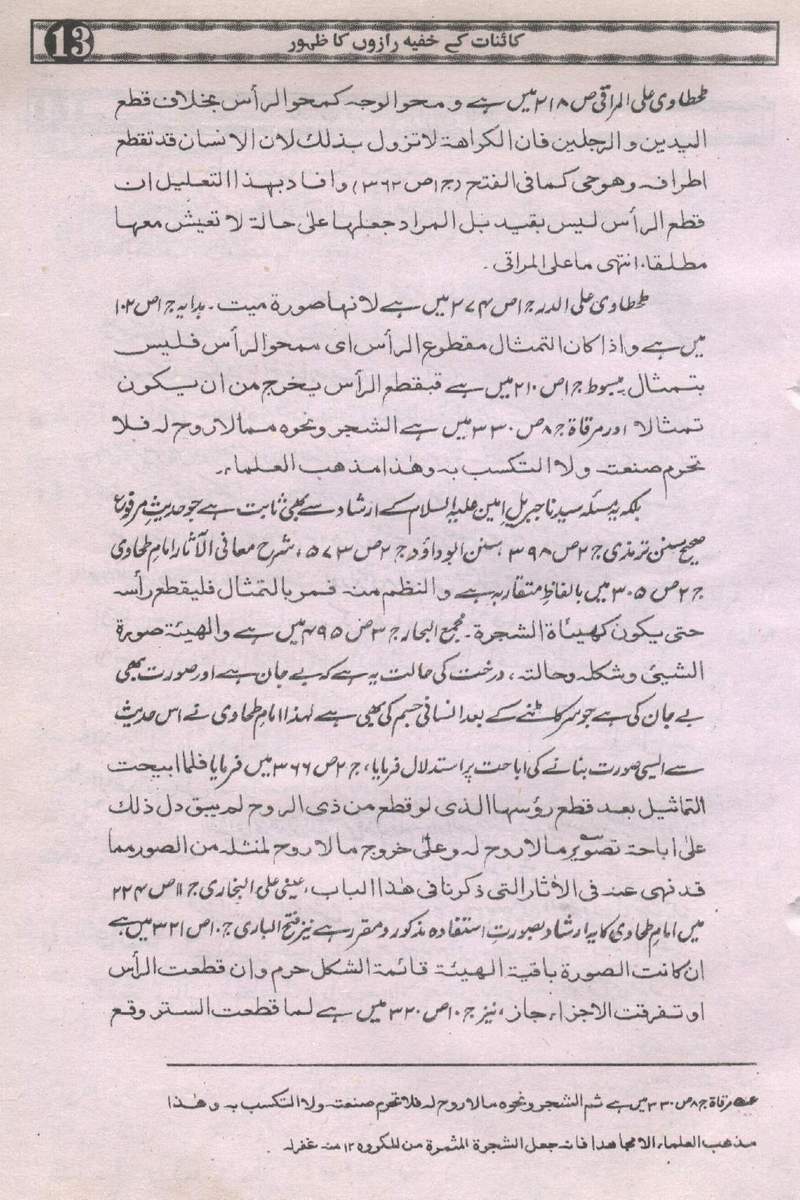 13
کائنات کے خفیہ رازوں کا ظہور
طحطاوی علی المراقی ص ۲۱۸ میں ہے ومحو الوجہ کمحو الرأس بخلاف قطع
الیدین والرجلین فان الکراھۃ لاتزول بذلک لان الانسان قد تقطع
اطرافہ وھو حی کما فی الفتح (ج۱ ص ۳۶۲) وافاد بہذا التعلیل ان
قطع الرأس لیس بقید بل المراد جعلہا علیٰ حالۃ لا تعیش معہا
مطلقا، انتہی ما علی المراقی۔
طحطاوی علی الدر ج۱ ص ۲۷۴ میں ہے لانہا صورۃ میت۔ ہدایہ ج۱ ص ۱۰۲
میں ہے واذا کان التمثال مقطوع الرأس ای ممحو الرأس فلیس
بتمثال مبسوط ج۱ ص ۲۱۰ میں ہے فبقطع الرأس یخرج من ان یکون
تمثالا اور مرقاۃ ج۸ ص ۳۳۰ میں ہے الشجر ونحوہ مما لا روح لہ فلا
تحرم صنعتہ ولا التکسب بہ وھٰذا مذھب العلماء۔
بلکہ یہ مسئلہ سیدنا جبریلِ امین علیہ السلام کے ارشاد سے بھی ثابت ہے جو حدیثِ مرفوع
صحیح سنن ترمذی ج۲ ص ۳۹۸، سنن ابو داؤد ج۲ ص ۵۷۳، شرح معانی الآثار امام طحاوی
ج۲ ص ۳۰۵ میں بالفاظِ متقاربہ ہے والنظم منہ فمر بالتمثال فلیقطع رأسہ
حتی یکون کھیئاۃ الشجرۃ۔ مجمع البحار ج۳ ص ۴۹۵ میں ہے والھیئۃ صورۃ
الشیئ وشکلہ وحالتہ، درخت کی حالت یہ ہے کہ بے جان ہے اور صورت بھی
بے جان کی ہے جو سر کٹنے کے بعد انسانی جسم کی بھی ہے لہذا امام طحاوی نے اس حدیث
سے ایسی صورت بنانے کی اباحت پر استدلال فرمایا، ج۲ ص ۳۶۶ میں فرمایا فلما ابیحت
التماثیل بعد قطع رؤسہا الذی لو قطع من ذی الروح لم یبق دل ذلک
علیٰ اباحۃ تصویر مالا روح لہ وعلیٰ خروج مالا روح لمثلہ من الصور مما
قد نہی عنہ فی الاٰثار التی ذکرنا فی ھٰذا الباب، عینی علی البخاری ج۱۱ ص ۲۲۴
میں امام طحاوی کا یہ ارشاد بصورتِ استفادہ مذکور و مقرر ہے نیز فتح الباری ج۱۰ ص ۳۲۱ میں ہے
ان کانت الصورۃ باقیۃ الھیئۃ قائمۃ الشکل حرم وان قطعت الرأس
او تفرقت الاجزاء جاز، نیز ج۱۰ ص ۳۲۰ میں ہے لما قطعت الستر وقع
عہ مرقاۃ ج۸ ص ۳۳۰ میں ہے ثم الشجر ونحوہ مالا روح لہ فلا تحرم صنعتہ ولا التکسب بہ وھٰذا
مذھب العلماء الا مجاھدا فانہ جعل الشجرۃ المثمرۃ من المکروہ ۱۲ منہ غفرلہ